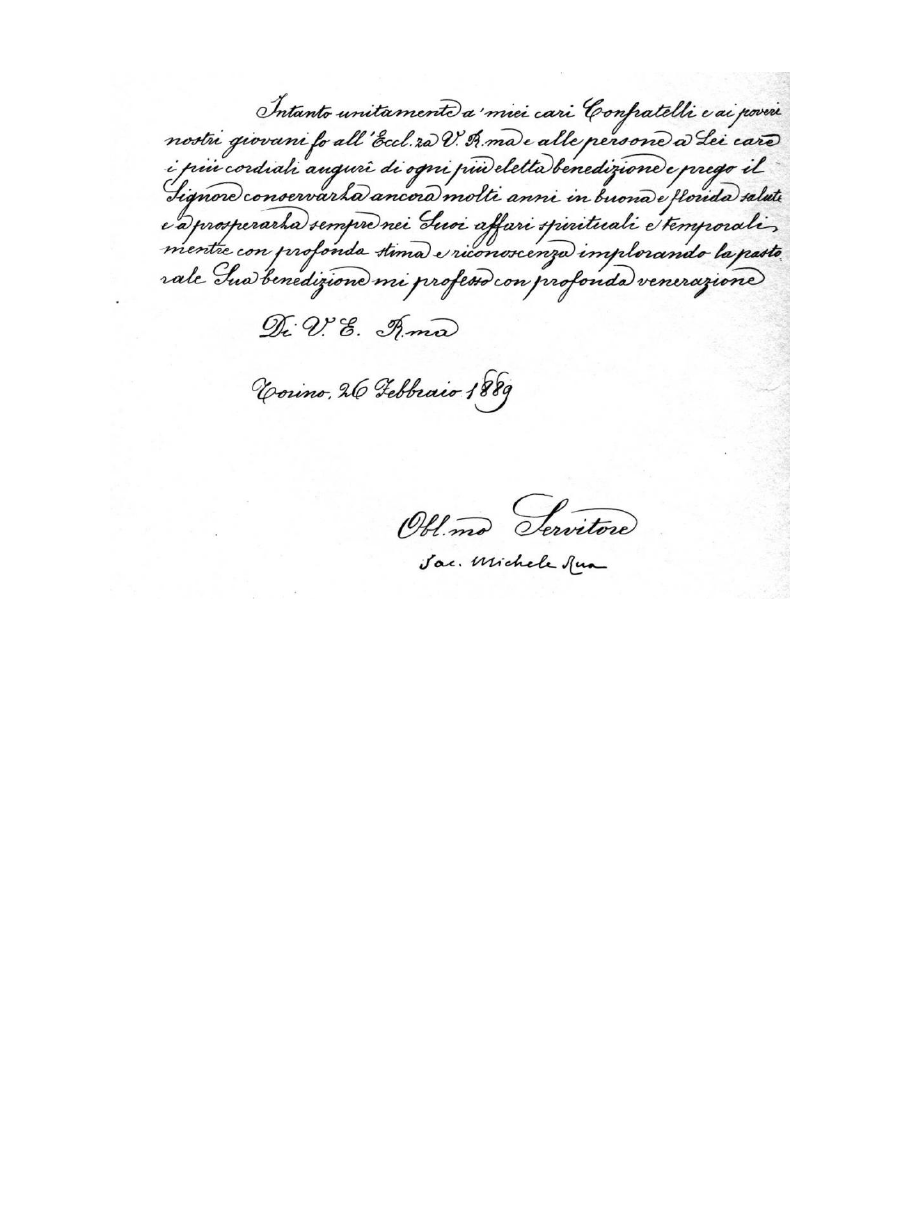 Intanto unitamente a' miei cari Confratelli e ai poveri
nostri giovani fo all'Eccl.za V. R.ma e alle persone a Lei care
i più cordiali augurî di ogni più eletta benedizione e prego il
Signore conservarLa ancora molti anni in buona e florida salute
e a prosperarLa sempre nei Suoi affari spirituali e temporali,
mentre con profonda stima e riconoscenza implorando la pasto
rale Sua benedizione mi professo con profonda venerazione
Di V. E. R.ma
Torino, 26 Febbraio 1889
Obl.mo Servitore
Sac. Michele Rua